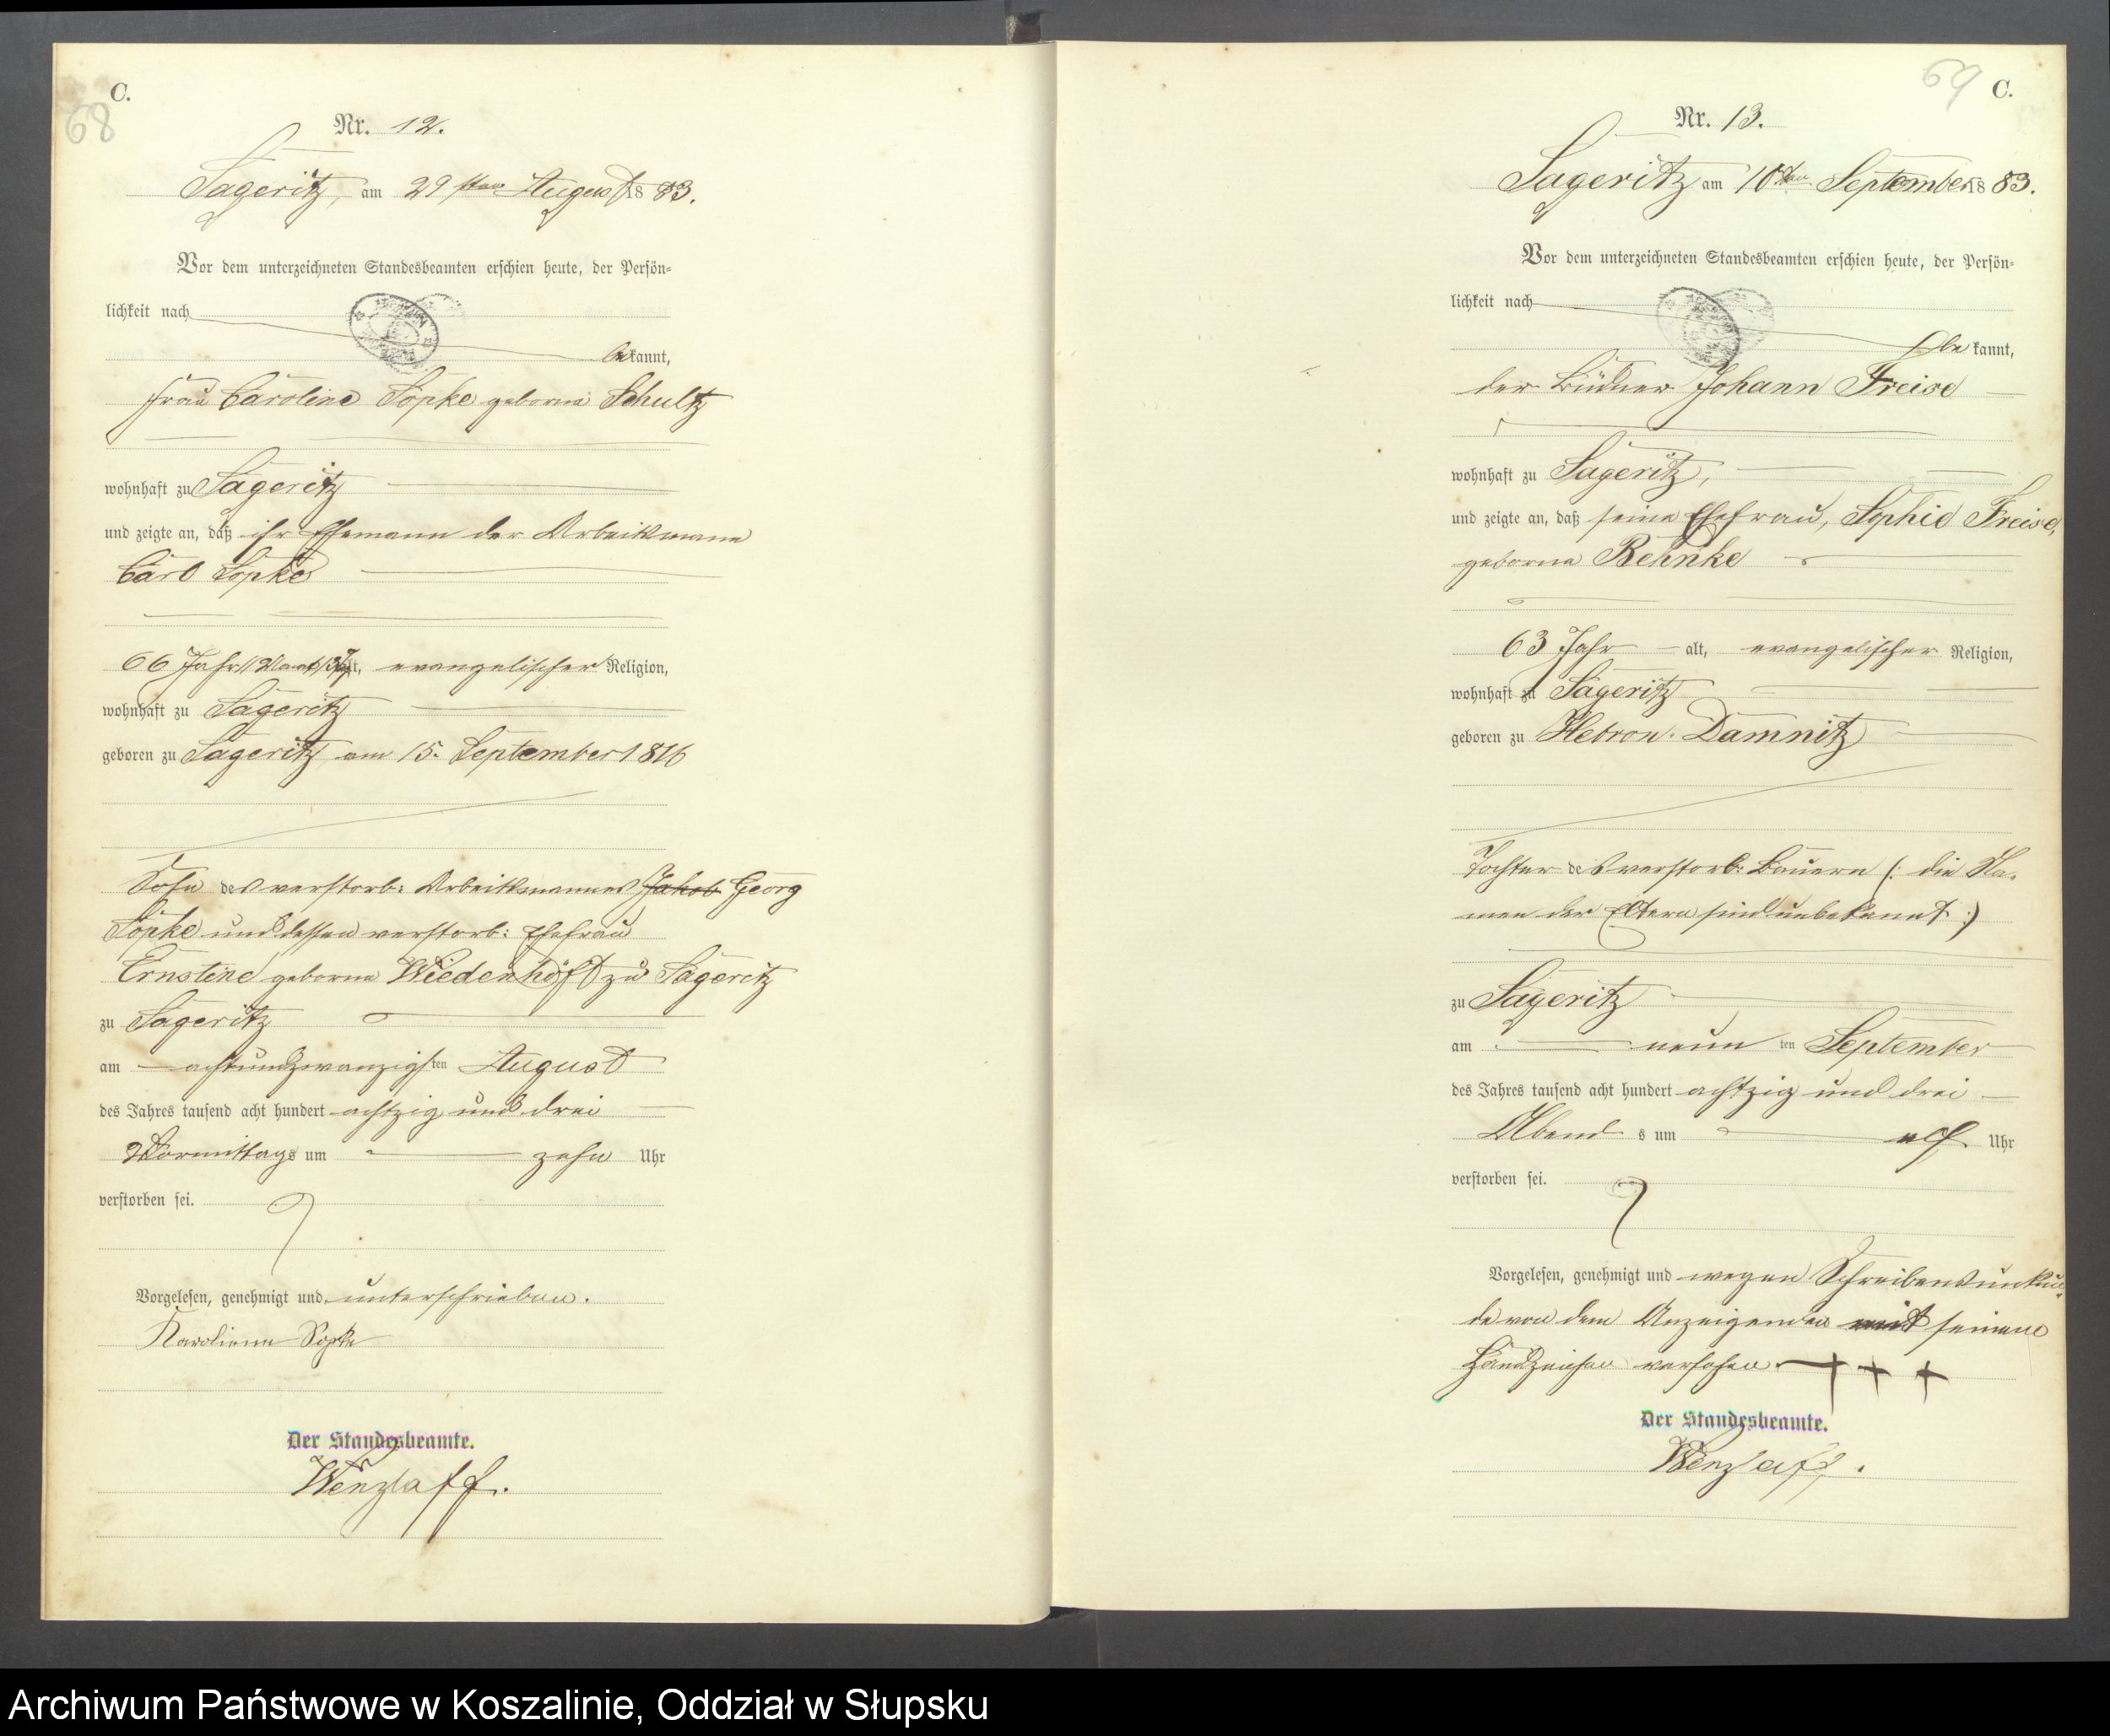 C.
68
Nr. 12.
Sageritz, am 29 sten August 18 83.
Vor dem unterzeichneten Standesbeamten erschien heute, der Persön-
lichkeit nach
bekannt,
Frau Caroline Sopke geborne Schultz
wohnhaft zu Sageritz
und zeigte an, daß ihr Ehemann der Arbeitsmann
Carl Sopke
66 Jahr 11 Monat 13 alt, evangelischer Religion,
wohnhaft zu Sageritz
geboren zu Sageritz am 15. September 1816
Sohn des verstorb: Arbeitsmannes Jakob Georg
Sopke und dessen verstorb: Ehefrau
Ernstine geborne Wiedenhöft zu Sageritz
zu Sageritz
am achtundzwanzigsten August
des Jahres tausend acht hundert achtzig und drei
Vormittags um zehn Uhr
verstorben sei.
Vorgelesen, genehmigt und unterschrieben.
Karoliene Sopke
Der Standesbeamte.
Wenzlaff.
69 C.
Nr. 13.
Sageritz am 10ten September 18 83.
Vor dem unterzeichneten Standesbeamten erschien heute, der Persön-
lichkeit nach
be kannt,
der Büdner Johann Freise
wohnhaft zu Sageritz,
und zeigte an, daß seine Ehefrau, Sophie Freise,
geborne Rehnke
63 Jahr alt, evangelischer Religion,
wohnhaft zu Sageritz
geboren zu Hebron-Damnitz
Tochter des verstorb: Bauern (: die Na-
men der Eltern sind unbekannt :)
zu Sageritz
am neun ten September
des Jahres tausend acht hundert achtzig und drei
Abend s um elf Uhr
verstorben sei.
Vorgelesen, genehmigt und wegen Schreibensunkun-
de von dem Anzeigenden mit seinem
Handzeichen versehen. + + +
Der Standesbeamte.
Wenzlaff.
Archiwum Państwowe w Koszalinie, Oddział w Słupsku